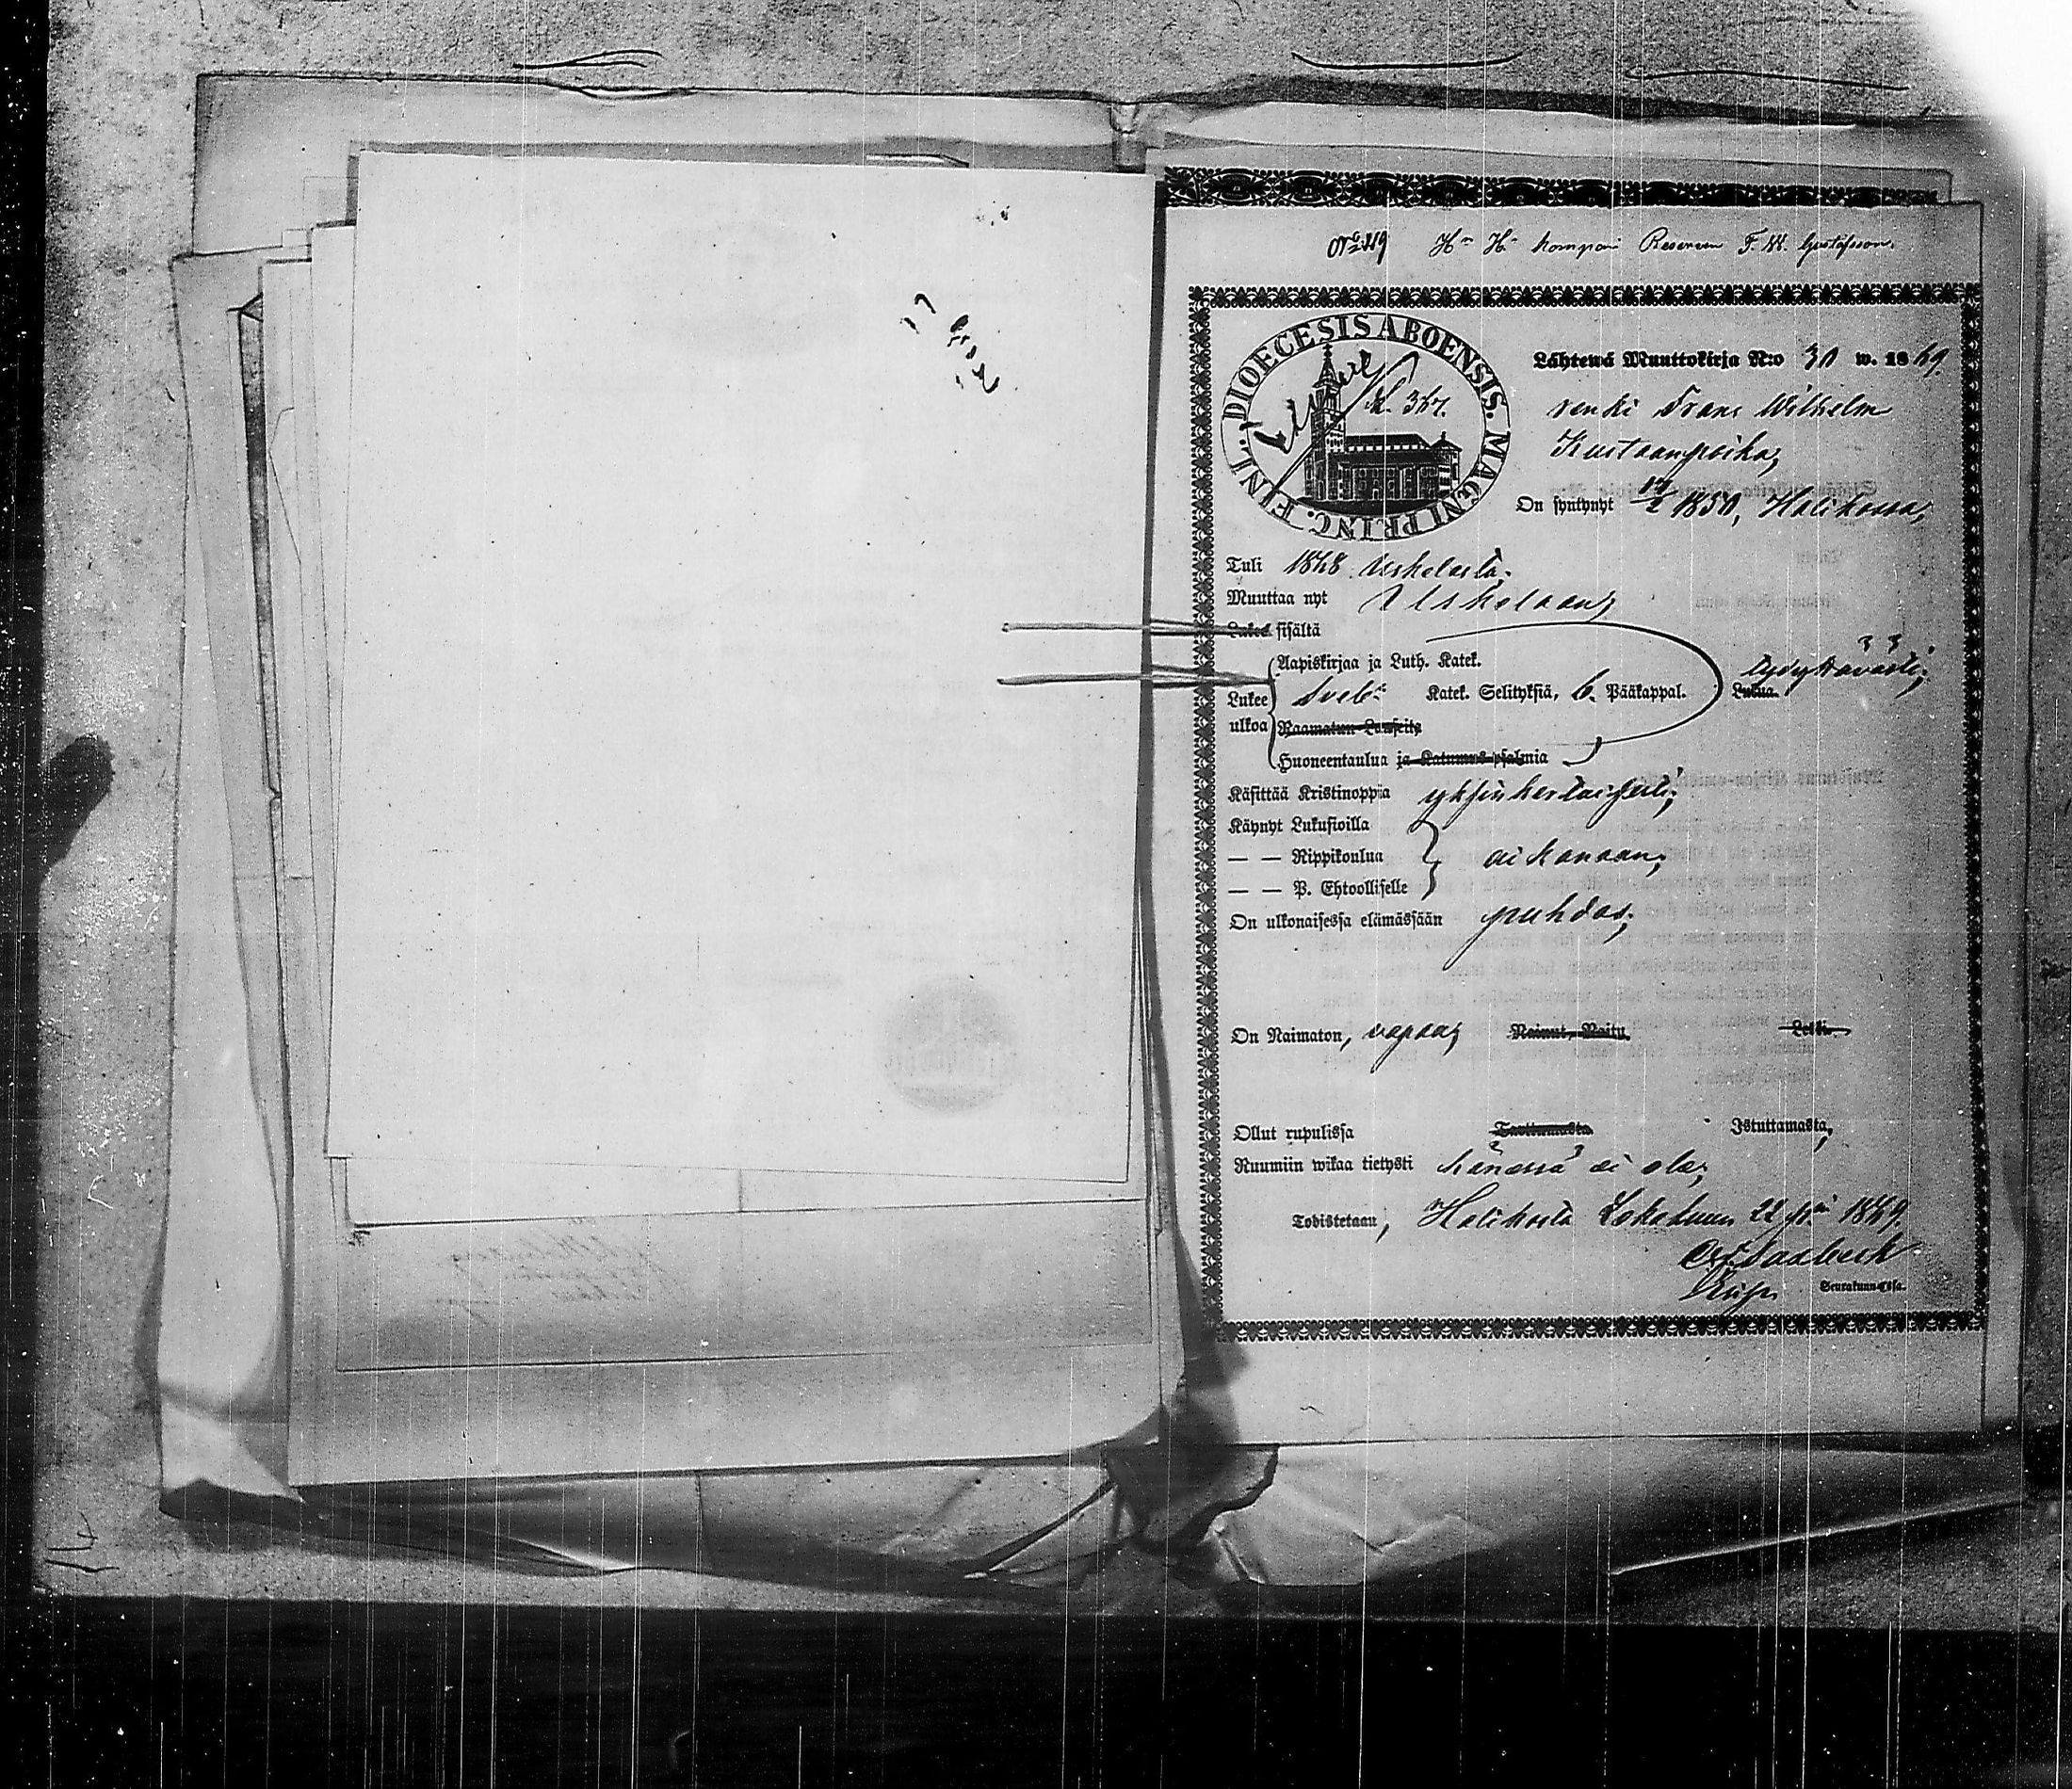 N:o 119 H:n H:s kompani Reserven F. W. Gustafsson.
DIOECESIS ABOENSIS. MAGNI PRINC. FINL.
Lähtewä Muuttokirja N:o 30 w. 1869.
renki Frans Wilhelm
Kustaanpoika,
On syntynyt 17/2 1850, Halikossa,
Tuli 1868 Uskelasta.
Muuttaa nyt Uskelaan,
Lukee sisältä
Aapiskirjaa ja Luth. Katek.
Lukee Sveb: Katek. Selityksiä, 6. Pääkappal. tydyttävästi; Lukua.
ulkoa Raamatun Lauseita
Huoneentaulua ja Katumus-psalmia
Käsittää Kristinoppia yksinkertaisesti;
Käynyt Lukusioilla
— — Rippikoulua aikanaan;
— — P. Ehtoolliselle
On ulkonaisessa elämässään puhdas;
On Naimaton, vapaa, Nainut, Naitu, Leski.
Ollut rupulissa Tarttumasta Istuttamasta,
Ruumiin wikaa tietysti hänessä ei ole,
Todistetaan, Halikosta Lokakuun 22 p:nä 1869.
Seurakunnassa.